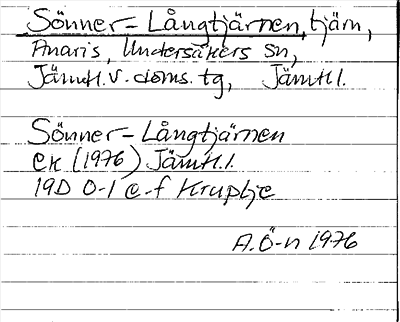 Sönner-Långtjärnen, tjärn,
Anaris, Undersåkers sn,
Jämtl.v.doms.tg, Jämtl.l.
Sönner-Långtjärnen
ek (1976) Jämtl.l.
19D 0-1 e-f Kruptje
A.Ö-n 1976